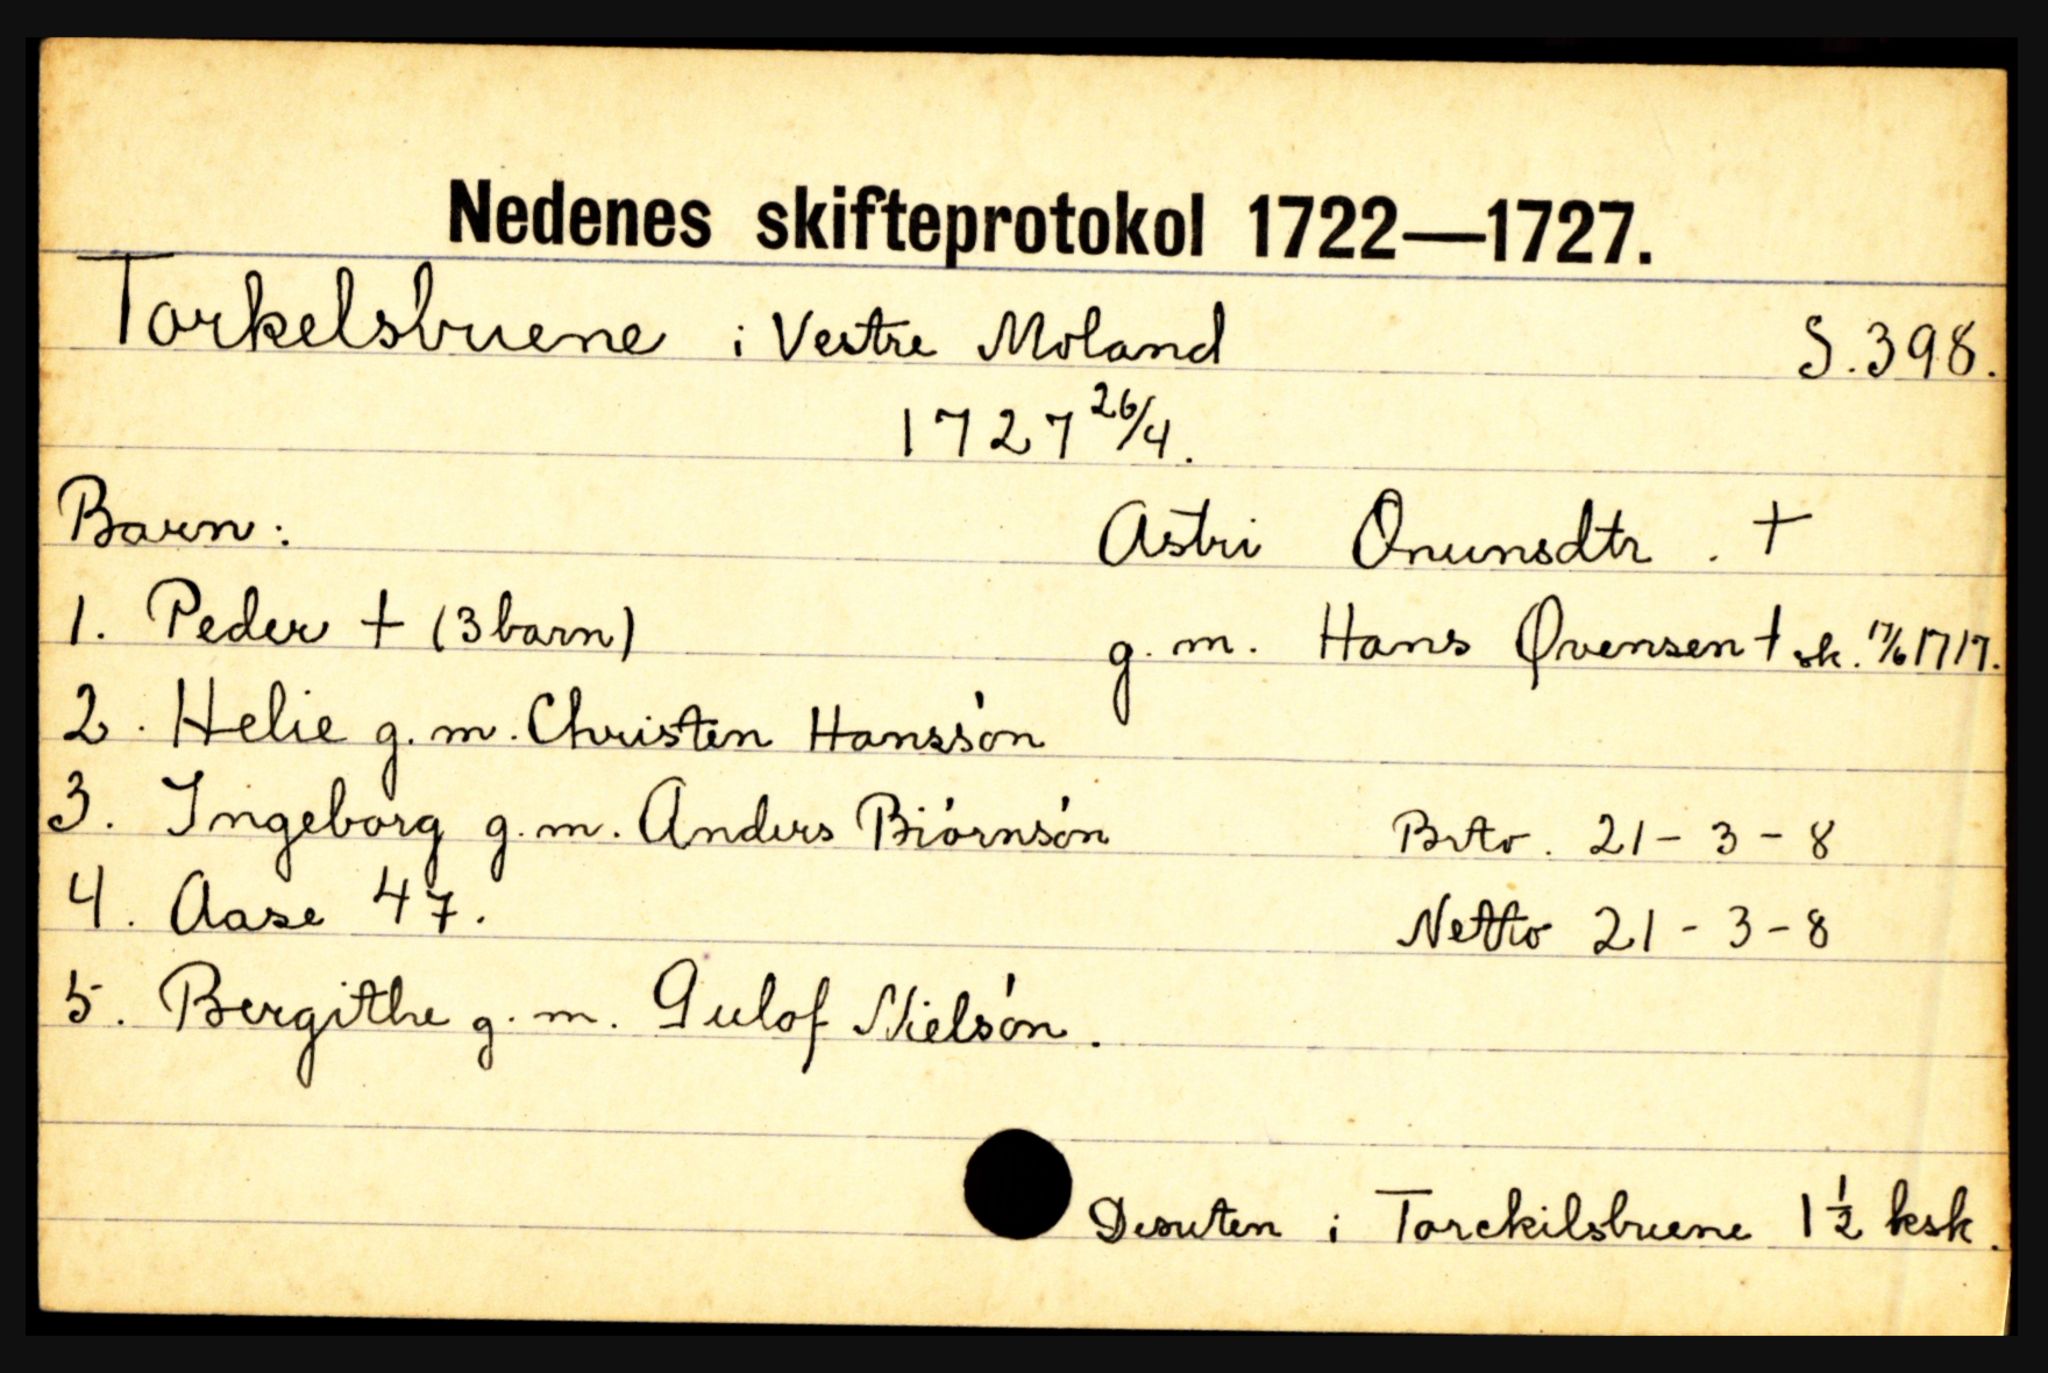 Nedenes skifteprotokol 1722—1727.
Torkelsbuene i Vestre Moland S. 398.
1727 26/4.
Barn: Astri Onunsdtr. +
1. Peder + (3 barn) g. m. Hans Øvensen + sk. 17/6 1717.
2. Helie g. m. Christen Hanssón
3. Ingeborg g. m. Anders Biórnsón Brto. 21 - 3 - 8
4. Aase 47. Netto 21 - 3 - 8
5. Bergithe g. m. Gulof Nielsón.
Desuten i Torckilsbuene 1 1/2 ksk.